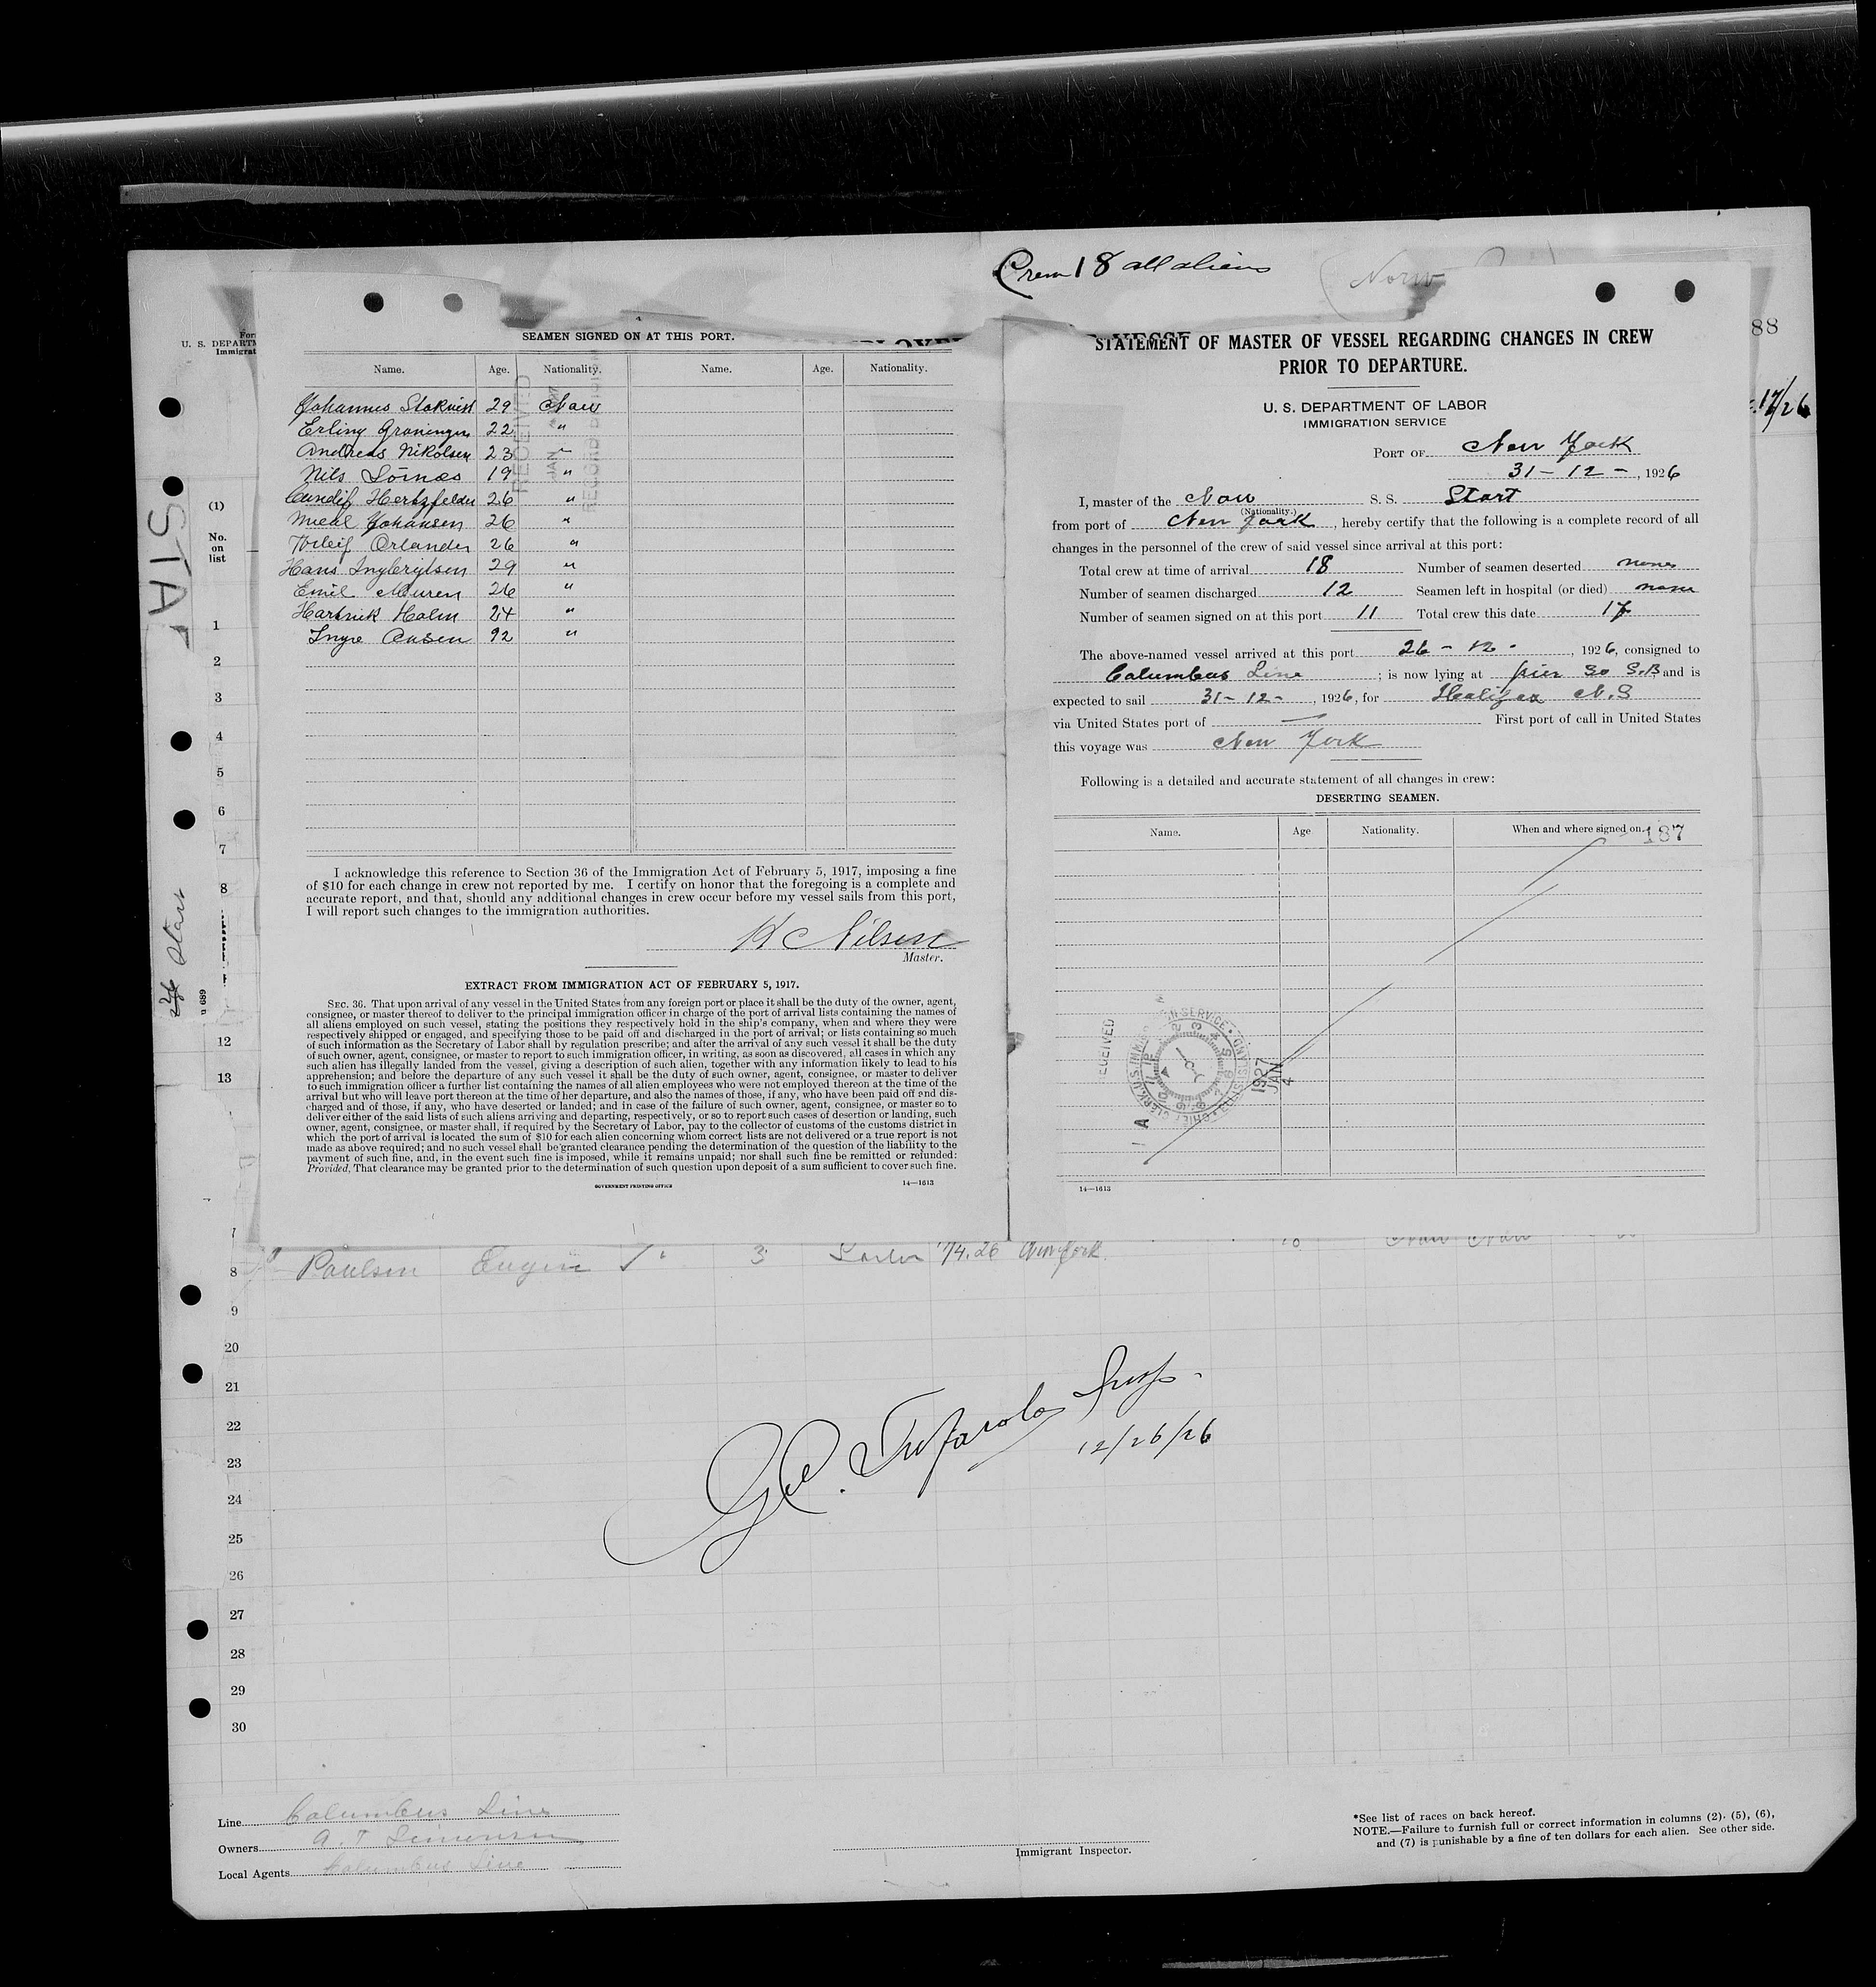 Crew 18 all aliens
Norw
88
12/26
U. S. DEPARTM
Immigrat
(1)
No.
on
list
STAR
Start
u 689
1
2
3
4
5
6
7
8
12
13
SEAMEN SIGNED ON AT THIS PORT.
Name. Age. Nationality. Name. Age. Nationality.
Johannes Stokvist 29 Now
Erling Groningen 22 "
Andreas Nikolsen 23 "
Nils Lornæs 19 "
Hertzfelder 26 "
Johansen 26 "
Torleif Orlander 26 "
Hans Ingbrigtsen 29 "
Emil Muren 26 "
Hartvik Holm 24 "
92 "
RECEIVED
JAN
RECORD DIVISION
I acknowledge this reference to Section 36 of the Immigration Act of February 5, 1917, imposing a fine
of $10 for each change in crew not reported by me. I certify on honor that the foregoing is a complete and
accurate report, and that, should any additional changes in crew occur before my vessel sails from this port,
I will report such changes to the immigration authorities.
K C Nilsen
Master.
EXTRACT FROM IMMIGRATION ACT OF FEBRUARY 5, 1917.
SEC. 36. That upon arrival of any vessel in the United States from any foreign port or place it shall be the duty of the owner, agent,
consignee, or master thereof to deliver to the principal immigration officer in charge of the port of arrival lists containing the names of
all aliens employed on such vessel, stating the positions they respectively hold in the ship's company, when and where they were
respectively shipped or engaged, and specifying those to be paid off and discharged in the port of arrival; or lists containing so much
of such information as the Secretary of Labor shall by regulation prescribe; and after the arrival of any such vessel it shall be the duty
of such owner, agent, consignee, or master to report to such immigration officer, in writing, as soon as discovered, all cases in which any
such alien has illegally landed from the vessel, giving a description of such alien, together with any information likely to lead to his
apprehension; and before the departure of any such vessel it shall be the duty of such owner, agent, consignee, or master to deliver
to such immigration officer a further list containing the names of all alien employees who were not employed thereon at the time of the
arrival but who will leave port thereon at the time of her departure, and also the names of those, if any, who have been paid off and dis-
charged and of those, if any, who have deserted or landed; and in case of the failure of such owner, agent, consignee, or master so to
deliver either of the said lists of such aliens arriving and departing, respectively, or so to report such cases of desertion or landing, such
owner, agent, consignee, or master shall, if required by the Secretary of Labor, pay to the collector of customs of the customs district in
which the port of arrival is located the sum of $10 for each alien concerning whom correct lists are not delivered or a true report is not
made as above required; and no such vessel shall be granted clearance pending the determination of the question of the liability to the
payment of such fine, and, in the event such fine is imposed, while it remains unpaid; nor shall such fine be remitted or refunded:
Provided, That clearance may be granted prior to the determination of such question upon deposit of a sum sufficient to cover such fine.
GOVERNMENT PRINTING OFFICE
14—1613
STATEMENT OF MASTER OF VESSEL REGARDING CHANGES IN CREW
PRIOR TO DEPARTURE.
U. S. DEPARTMENT OF LABOR
IMMIGRATION SERVICE
PORT OF New York
31 - 12 - , 1926
I, master of the Now S. S. Start
(Nationality.)
from port of New York, hereby certify that the following is a complete record of all
changes in the personnel of the crew of said vessel since arrival at this port:
Total crew at time of arrival 18 Number of seamen deserted none
Number of seamen discharged 12 Seamen left in hospital (or died) none
Number of seamen signed on at this port 11 Total crew this date 17
The above-named vessel arrived at this port 26 - 12 - , 1926, consigned to
Columbus Line ; is now lying at pier 30 S.B and is
expected to sail 31 - 12 - , 1926, for Halifax N.S
via United States port of — First port of call in United States
this voyage was New York
Following is a detailed and accurate statement of all changes in crew:
DESERTING SEAMEN.
Name. Age Nationality. When and where signed on.
187
1927
JAN
4
14—1613
8 Paulsen Eugen 3 1/4.26 New York
9
20
21
22
23
24
25
26
27
28
29
30
Insp.
12/26/26
Line Columbus Line
Owners A. T. Simonsen
Local Agents Columbus Line
Immigrant Inspector.
*See list of races on back hereof.
NOTE.—Failure to furnish full or correct information in columns (2), (5), (6),
and (7) is punishable by a fine of ten dollars for each alien. See other side.